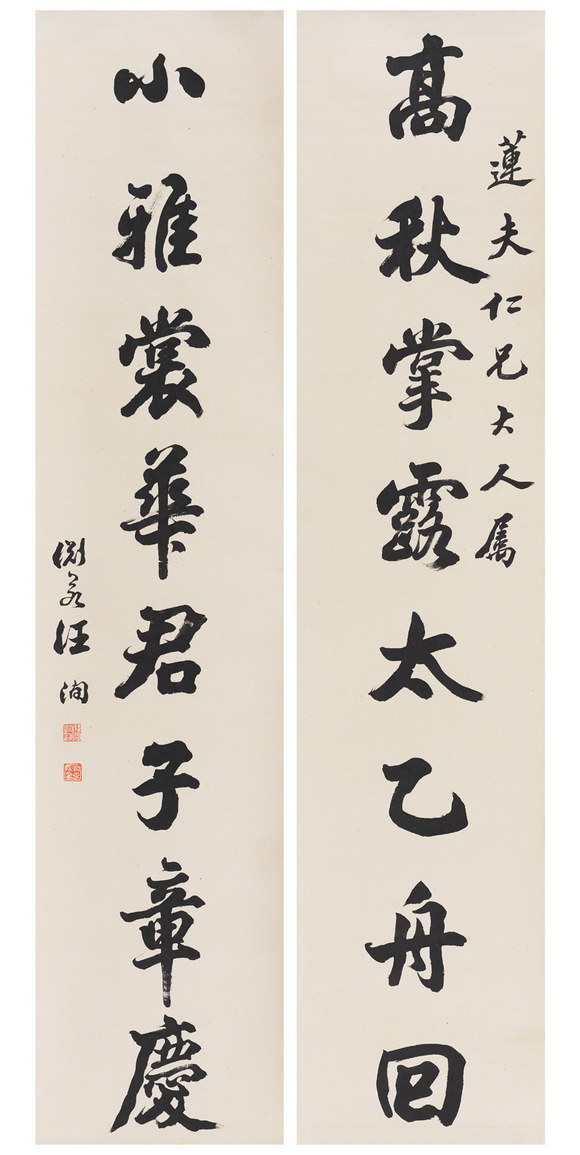 蓮夫仁兄大人属
高秋掌露太乙舟回
小雅裳華君子章慶
淵若汪洵